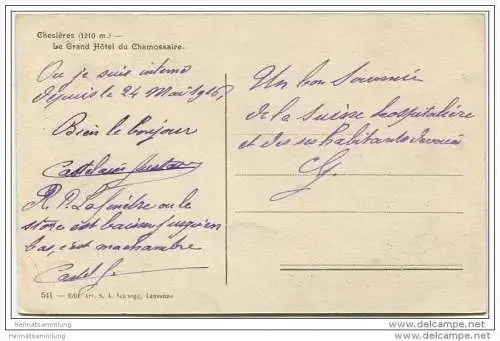 Chesières (1210 m.) —
Le Grand Hôtel du Chamossaire.
Ou je suis interné
depuis le 24 Mai 1916
Bien le bonjour
Castelain Gustave
R. P. La fenêtre ou le
store est baissé jusqu'en
bas, c'est ma chambre
Castel G.
Un bon Souvenir
de la Suisse hospitalière
et de ses habitants dévoués
CG.
541 — Edit. Art. S. A. Schnegg, Lausanne
Heimatsammlung
http://heimatsammlung.de
Heimatsammlung
http://heimatsammlung.de